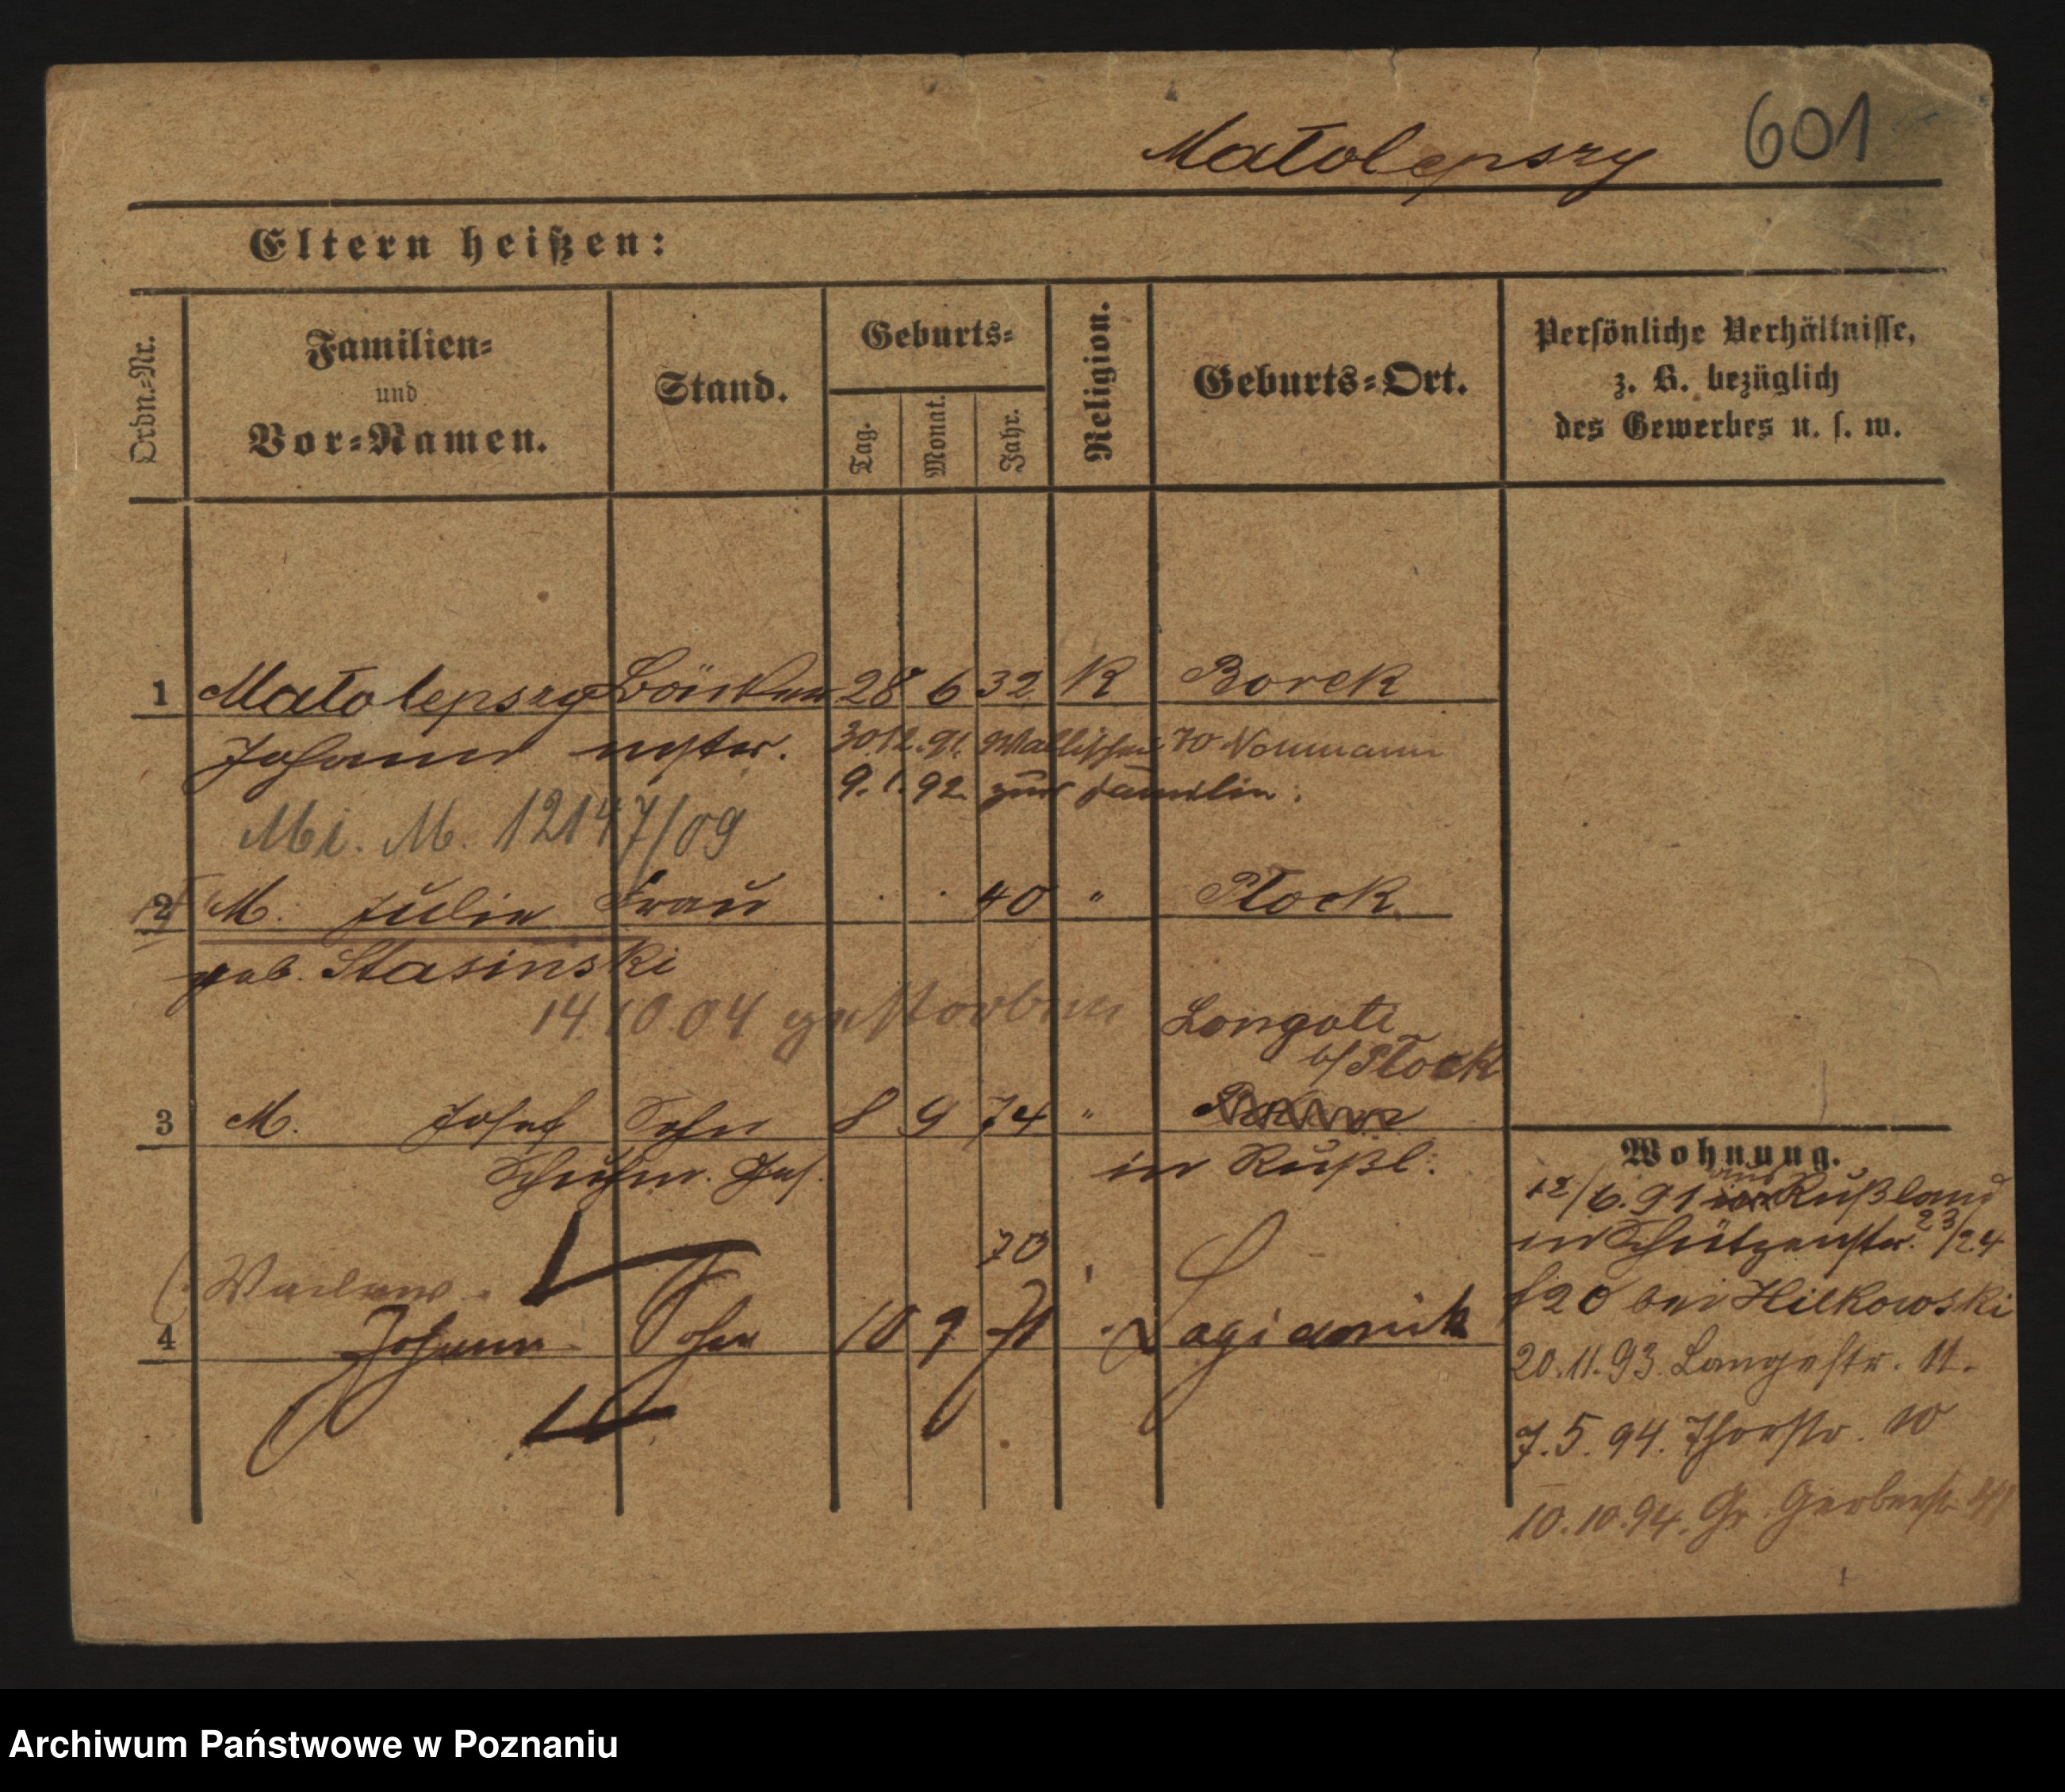 Małolepszy 601
Eltern heißen:
Ordn.-Nr. Familien- und Vor-Namen. Stand. Geburts- Tag. Monat. Jahr. Religion. Geburts-Ort. Persönliche Verhältnisse, z. B. bezüglich des Gewerbes u. s. w.
1 Małolepszy Böttcher 28 6 32 K Borek
Johann mstr. 30.12.91. Wallischei 70 Neumann
9.1.92 zur Familie.
Mi. M. 12147/09
2 M. Julie Frau 40 " Płock
geb. Stasinski
14.10.04 gestorben
Longote
b/Płock
3 M. Josef Sohn 8 9 74 "
Schuhm. Ges. in Rußl.
70
Waclaw
4 Johann Sohn 10 9 71
Wohnung.
12/6.91 aus Rußland
in Schützenstr. 23/24
bei Hilkowski
20.11.93 Langestr. 11.
7.5.94. Thorstr. 10
10.10.94. Gr. Gerberstr.
Archiwum Państwowe w Poznaniu